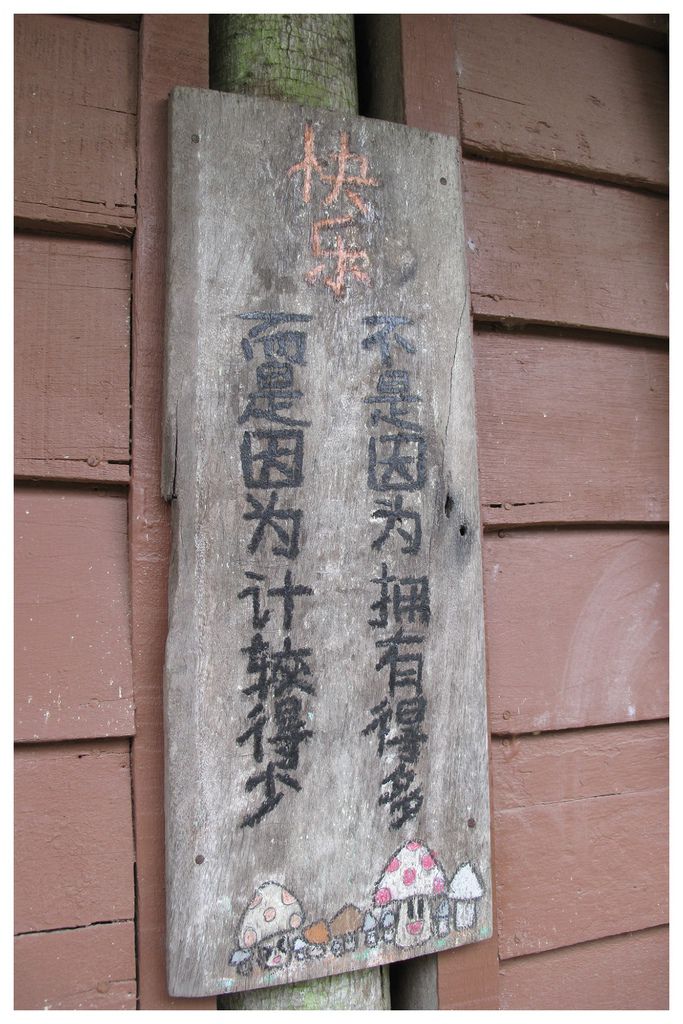 快乐
不是因为拥有得多
而是因为计较得少